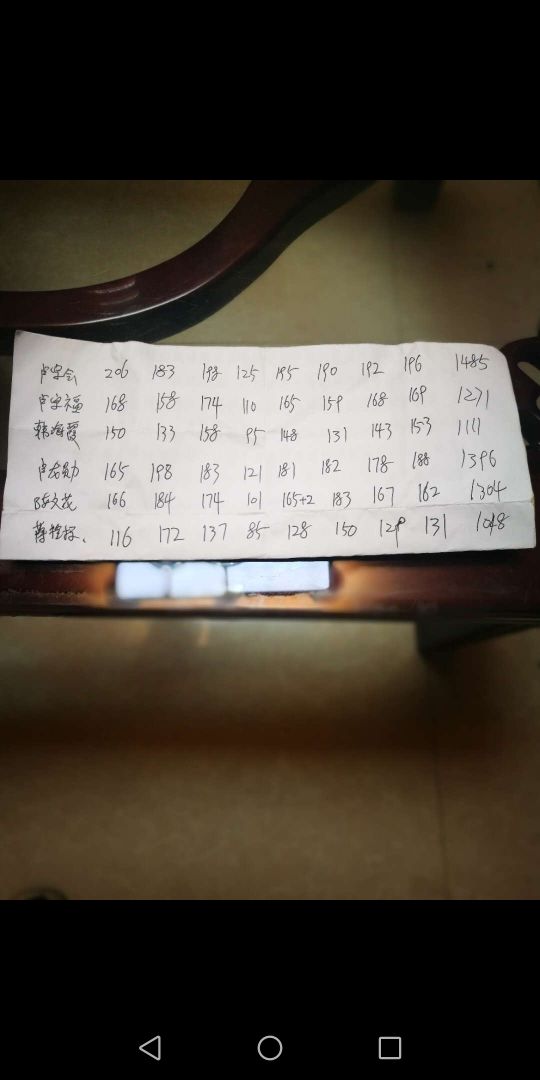 卢宗会 206 183 198 125 195 190 192 196 1485
卢宗福 168 158 174 110 165 159 168 169 1271
韩海霞 150 133 158 95 148 131 143 153 1111
165 198 183 121 181 182 178 188 1396
陈久花 166 184 174 101 165+2 183 167 162 1304
116 172 137 85 128 150 129 131 1048